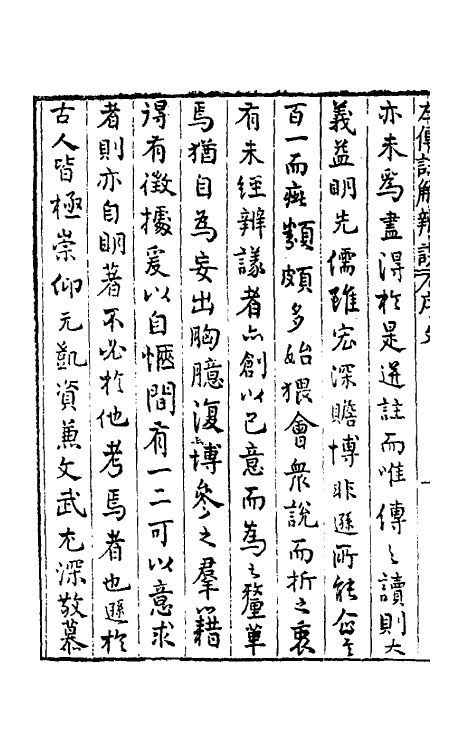 左傳註解辨誤 序文 一
亦未爲盡淂於是迸註而唯傳之讀則大
義益明先儒雖宏深贍博非遜所能企
百一而疵纇頗多始猥會衆說而折之衷
有未經辯議者亦創以己意而為之釐革
焉猶自為妄出胸臆復博參之羣籍
得有徵據爰以自愜間有一二可以意求
者則亦自明著不必於他考焉者也遜於
古人皆極崇仰元凱資兼文武尤深敬慕